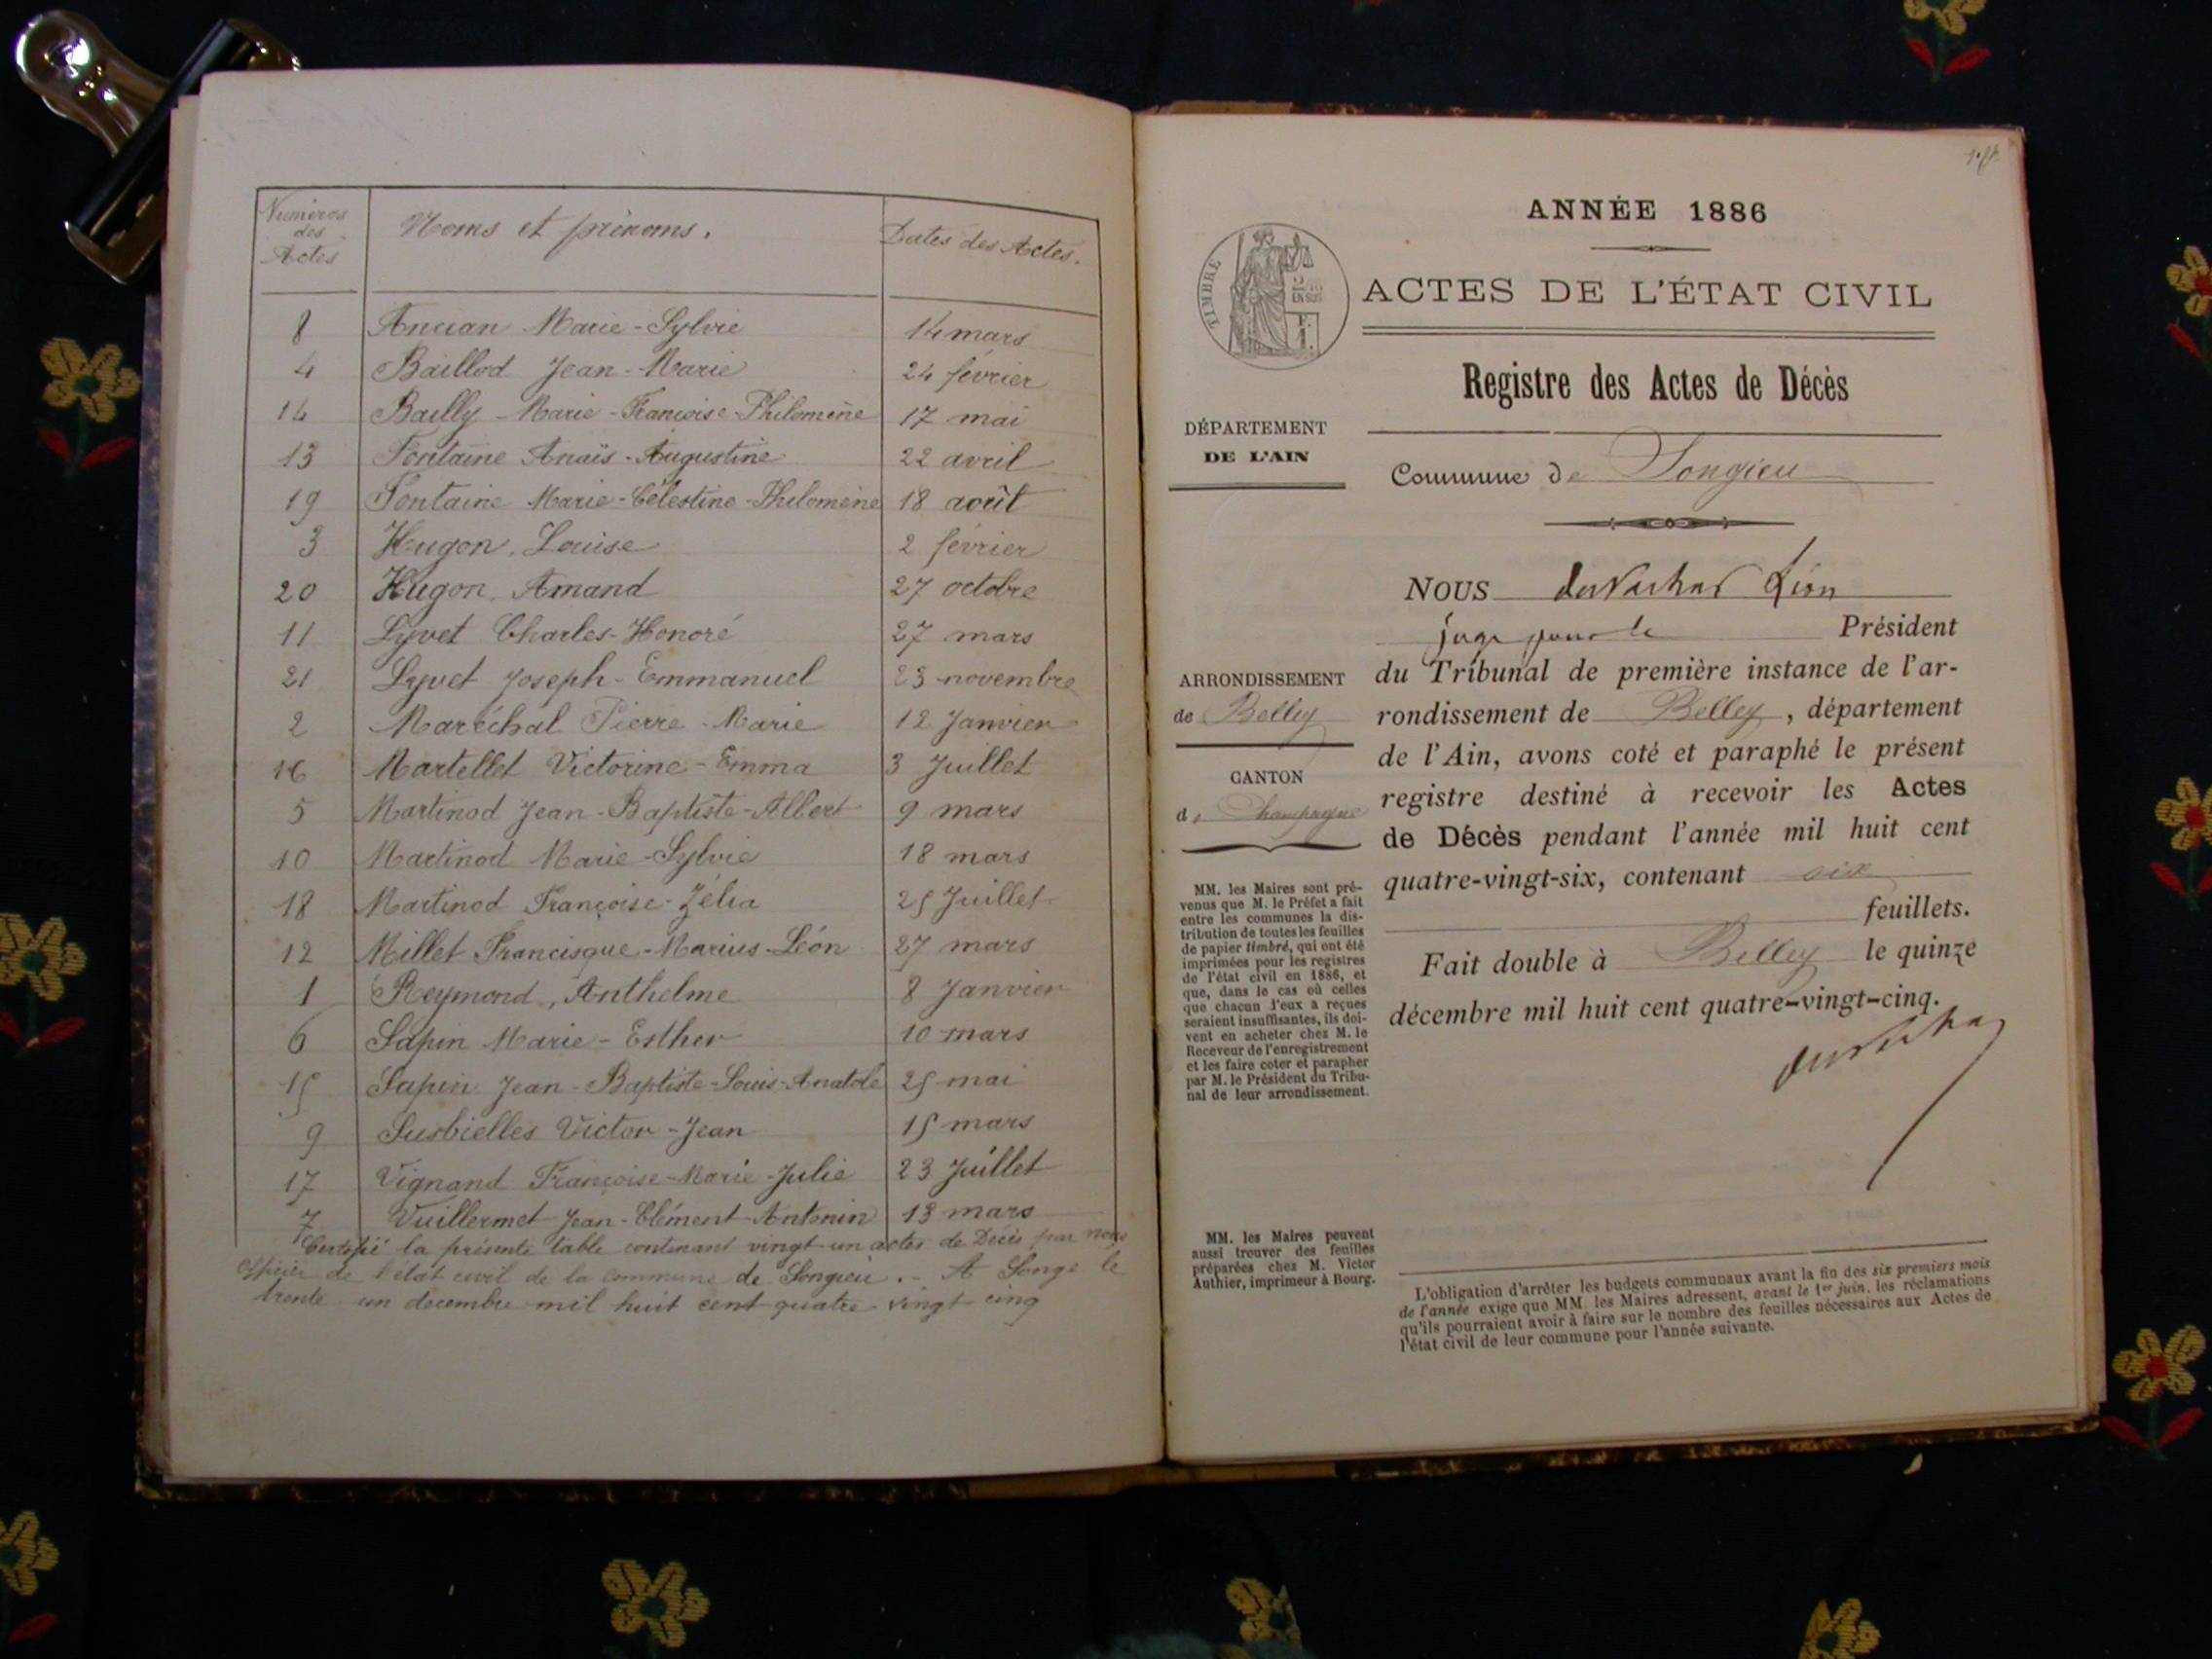 Numéros
des
Actes
Noms et prénoms.
Dates des Actes.
8 Ancian Marie-Sylvie 14 mars
4 Baillod Jean-Marie 24 février
14 Bailly Marie-Françoise-Philomène 17 mai
13 Fontaine Anaïs-Augustine 22 avril
19 Fontaine Marie-Célestine-Philomène 18 août
3 Hugon, Louise 2 février
20 Hugon, Amand 27 octobre
11 Lyvet Charles-Honoré 27 mars
21 Lyvet Joseph-Emmanuel 23 novembre
2 Maréchal Pierre-Marie 12 Janvier
16 Martellet Victorine-Emma 3 Juillet
5 Martinod Jean-Baptiste-Albert 9 mars
10 Martinod Marie-Sylvie 18 mars
18 Martinod Françoise-Zélia 25 Juillet
12 Millet Francisque-Marius-Léon 27 mars
1 Reymond, Anthelme 8 Janvier
6 Sapin Marie-Esther 10 mars
15 Sapin Jean-Baptiste-Louis-Anatole 25 mai
9 Susbielles Victor-Jean 15 mars
17 Vignand Françoise-Marie-Julie 23 Juillet
7 Vuillermet Jean-Clément-Antonin 13 mars
Certifié la présente table contenant vingt-un actes de Décès par nous
officier de l'état civil de la commune de Songieu. - A Songe le
trente un decembre mil huit cent quatre-vingt cinq
ANNÉE 1886
TIMBRE
2/10
EN SUS
ACTES DE L'ÉTAT CIVIL
Registre des Actes de Décès
DÉPARTEMENT
DE L'AIN
Commune de Songieu
NOUS Léon
juge pour le Président
du Tribunal de première instance de l'ar-
rondissement de Belley, département
de l'Ain, avons coté et paraphé le présent
registre destiné à recevoir les Actes
de Décès pendant l'année mil huit cent
quatre-vingt-six, contenant six
feuillets.
Fait double à Belley le quinze
décembre mil huit cent quatre-vingt-cinq.
ARRONDISSEMENT
de Belley
CANTON
de Champagne
MM. les Maires sont pré-
venus que M. le Préfet a fait
entre les communes la dis-
tribution de toutes les feuilles
de papier timbré, qui ont été
imprimées pour les registres
de l'état civil en 1886, et
que, dans le cas où celles
que chacun d'eux a reçues
seraient insuffisantes, ils doi-
vent en acheter chez M. le
Receveur de l'enregistrement
et les faire coter et parapher
par M. le Président du Tribu-
nal de leur arrondissement.
MM. les Maires peuvent
aussi trouver des feuilles
préparées chez M. Victor
Authier, imprimeur à Bourg.
L'obligation d'arrêter les budgets communaux avant la fin des six premiers mois
de l'année exige que MM. les Maires adressent, avant le 1er juin, les réclamations
qu'ils pourraient avoir à faire sur le nombre des feuilles nécessaires aux Actes de
l'état civil de leur commune pour l'année suivante.